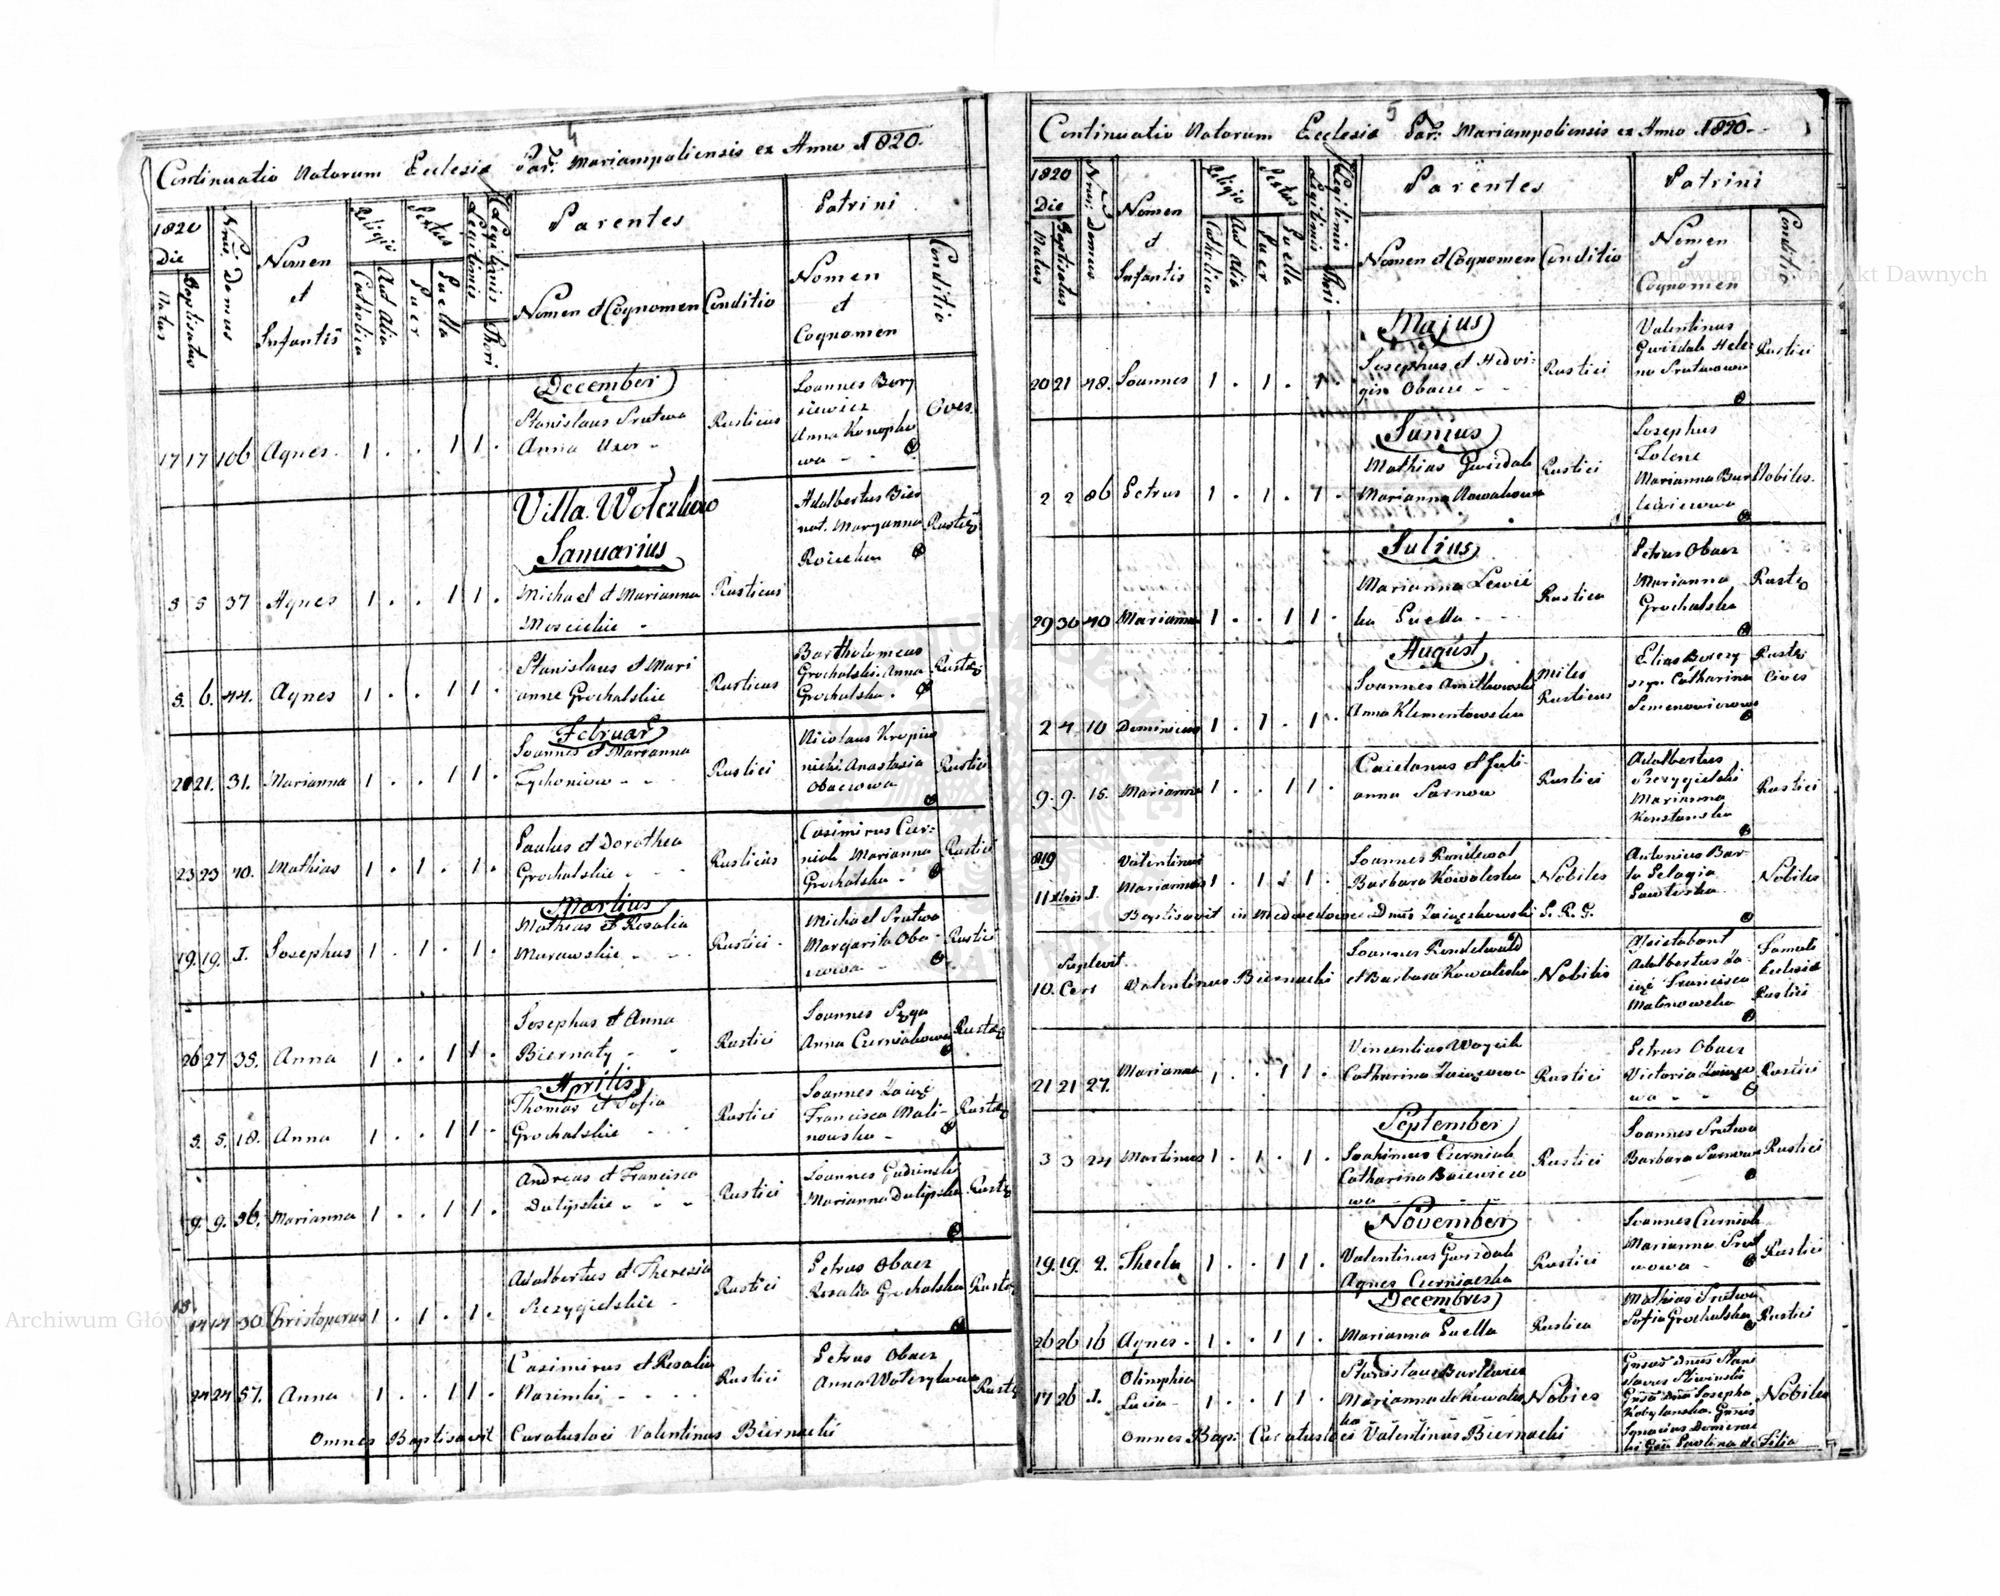 4
Continuatio Natorum Ecclesia Par: Mariampoliensis ex Anno 1820.
1820
Die
Natus
Baptisatus
Nrus Domus
Nomen
et
Infantis
Religio
Catholica
Aut Alia
Sextus
Puer
Puella
Legitimis
Illegitimis
Thori
Parentes
Nomen et Cognomen
Conditio
Patrini
Nomen
et
Cognomen
Conditio
December
17 17 106 Agnes 1 . . 1 1 .
Stanislaus Prutwa
Anna Uxor
Rusticus
Joannes Bory
siewicz
Anna Konopko
wa
Cives
Villa Wolczkow
Januarius
5 5 37 Agnes 1 . . 1 1 .
Michael et Marianna
Moscickie
Rusticus
Adalbertus Bier
nat. Maryanna
Roiecka
5. 6. 44. Agnes 1 . . 1 1 .
Stanislaus et Mari
anne Grochalskie
Rusticus
Bartholomeus
Grochalski. Anna
Grochalska.
Februar
21. 31. Marianna 1 . . 1 1 .
Joannes et Marianna
Tychoniow
Rustici
Nicolaus Kropiw
nicki Anastasia
Obaczowa
23 23 40. Mathias 1 . 1 . 1 .
Paulus et Dorothea
Grochalskie
Rusticus
Casimirus Czer:
niak Marianna
Grochalska
Rustici
Martius
19. 19. I. Josephus 1 . 1 . 1 .
Mathias et Rosalia
Murawskie
Rustici
Michael Prutwa
Margarita Oba
czowa
Rustici
26 27 35. Anna 1 . . 1 1 .
Josephus et Anna
Biernaty
Rustici
Joannes
Anna Czerniakowa
Aprilis
5. 5. 18. Anna 1 . . 1 1 .
Thomas et Sofia
Grochalskie
Rustici
Joannes Zaiąc
Francisca Mali-
nowska
9. 9. 36. Marianna 1 . . 1 1 .
Andreas et Francisca
Dulipskie
Rustici
Joannes Gudzinski
Marianna Dulipska
14 14 30 Christoporus 1 . 1 . 1 .
Adalbertus et Theresia
Przygielskie
Rustici
Petrus Obacz
Rosalia Grochalska
24 24 57. Anna 1 . . 1 1 .
Casimirus et Rosalia
Nazimki
Rustici
Petrus Obacz
Anna
Omnes Baptisavit Curatus loci Valentinus Biernacki
5
Continuatio Natorum Ecclesia Par: Mariampoliensis ex Anno 1820.
1820
Die
Natus
Baptisatus
Nrus Domus
Nomen
et
Infantis
Religio
Catholica
Aut Alia
Sextus
Puer
Puella
Legitimis
Illegitimis
Thori
Parentes
Nomen et Cognomen
Conditio
Patrini
Nomen
et
Cognomen
Conditio
Majus
20 21 48. Joannes 1 . 1 . 1 .
Josephus et Hedvi-
gin Obacze
Rustici
Valentinus
Gwizdak Hele
na Prutwowa
Rustici
Junius
2 2 86 Petrus 1 . 1 . 1 .
Mathias Gwizdak
Marianna Nowakowa
Rustici
Josephus
Marianna Bur
Nobiles.
Julius
29 30 40 Marianna 1 . . 1 1 .
Marianna Lewic
ka Puella
Rustica
Petrus Obacz
Marianna
Grochalska
August
2 4 10 Dominicus 1 . 1 . 1 .
Joannes
Anna Klementowska
Miles
Rusticus
Elias
Catharina
Semenowiczowa
Cives
9. 9. 15. Marianna 1 . . 1 1 .
Caietanus et Juli
anna Sarnow
Rustici
Adalbertus
Przygielski
Marianna
Konstanska
Rustici
819
11 Xbris I. Valentinus
Mariannus 1 . 1 . 1 .
Joannes Rendewal
Barbara Kowaleska
Nobiles
Antonius Bar
Pelagia
Nobiles
Baptisavit in Medwedowce Dnus Zaiączkowski P. R. G.
Suplevit
10. Cer Valentinus Biernacki
Joannes Rendelwald
et Barbara Kowaleska
Nobilis
Assistabant
Adalbertus Za
iąc Francisca
Malinowska
Famuli
Ecclesia
Rustici
21 21 27. Marianna 1 . . 1 1 .
Vincentius Woycik
Catharina Zaiącowa
Rustici
Petrus Obacz
Victoria Zaiąco
wa
Rustici
September
3 3 24 Martinus 1 . 1 . 1 .
Joahimus Czerniak
Catharina
wa
Rustici
Joannes Prutwa
Barbara Sarnowa
Rustici
November
19. 19. 2. Thecla 1 . . 1 1 .
Valentinus Gwizdak
Agnes Czerniaczka
Rustici
Joannes Czerniak
Marianna Prut
wowa
Rustici
Decembris
26 26 16 Agnes 1 . . 1 1 .
Marianna Puella
Rustica
Mathias Prutwa
Sofia Grochalska
Rustici
17 26 I. Olimphia
Lucia 1 . . 1 1 .
Stanislaus
Marianna de Kowales
ka
Nobies
Nobiles
Omnes Bap: Curatus loci Valentinus Biernacki
Archiwum Główne Akt Dawnych